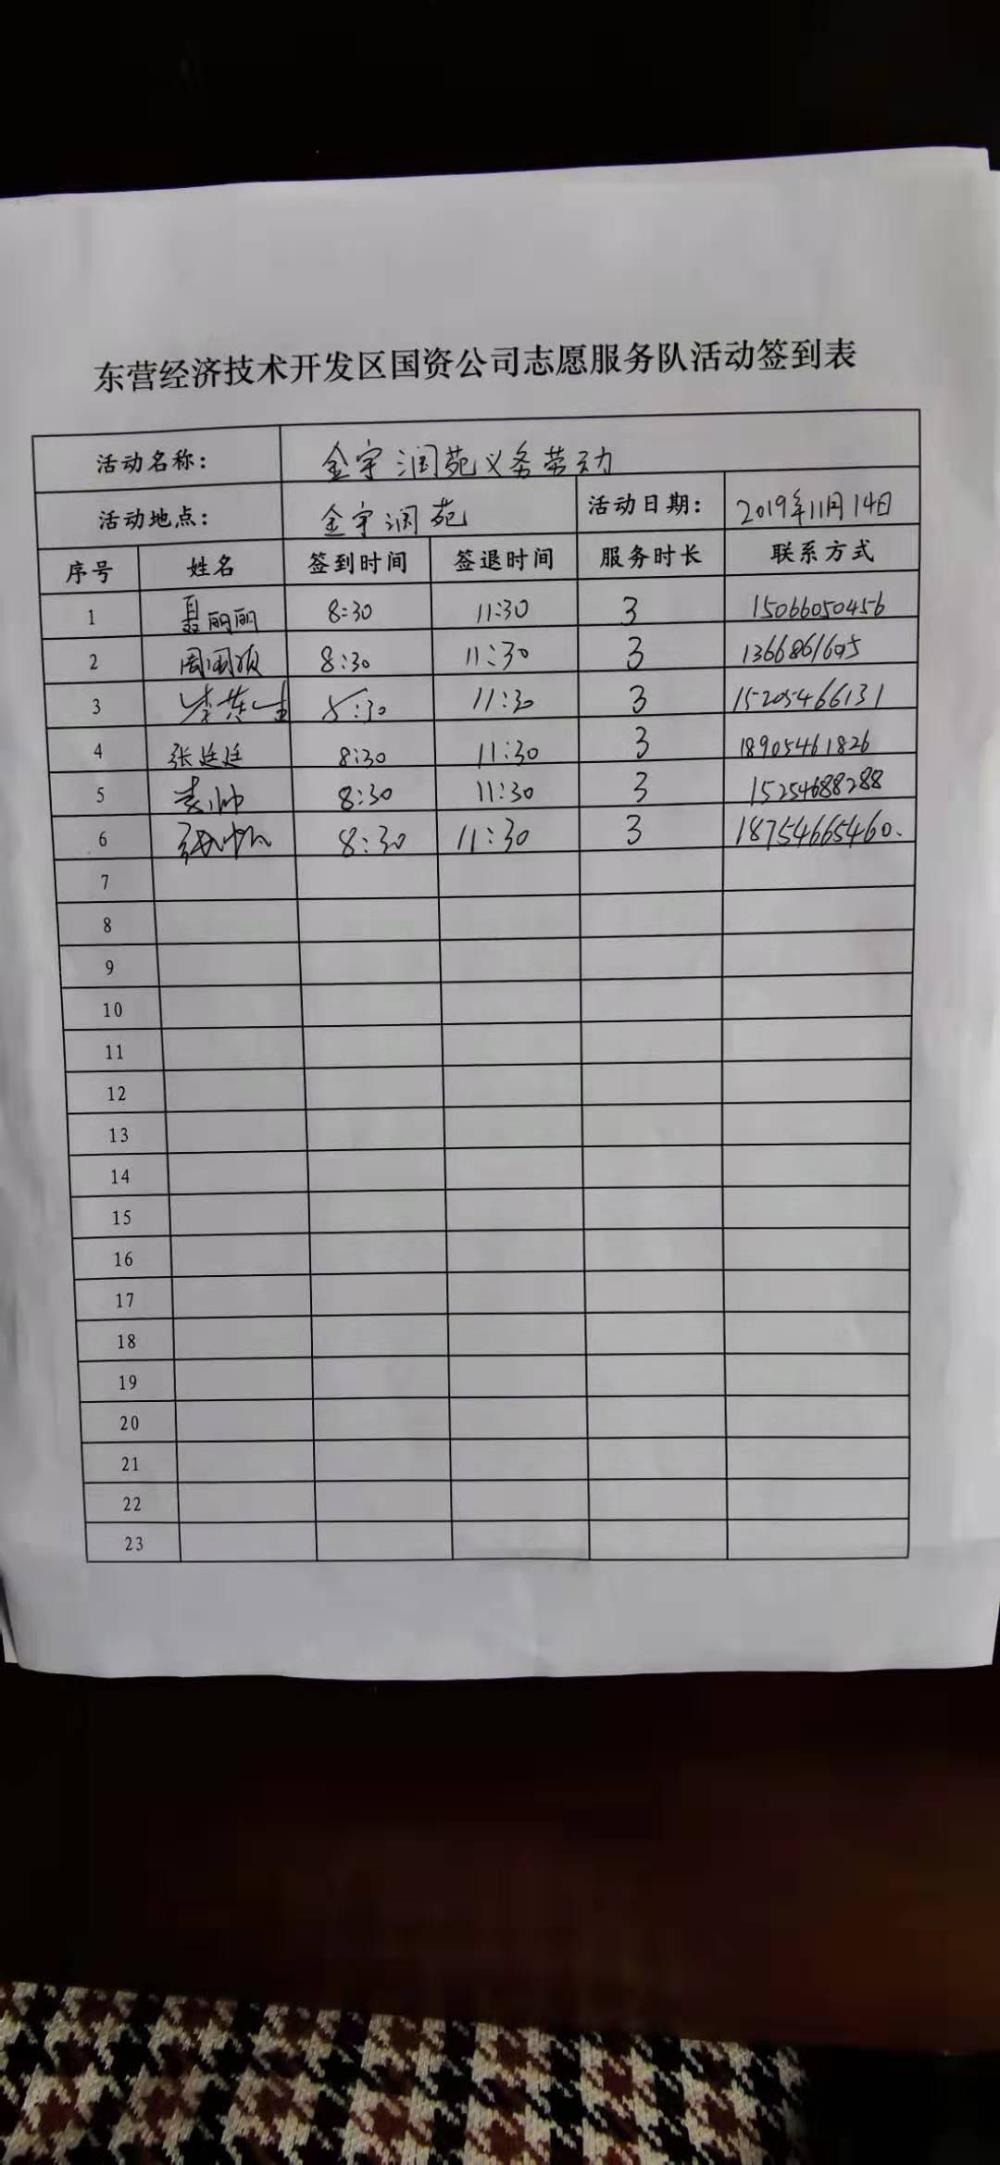 东营经济技术开发区国资公司志愿服务队活动签到表
活动名称： 金宇润苑义务劳动
活动地点： 金宇润苑 活动日期： 2019年11月14日
序号 姓名 签到时间 签退时间 服务时长 联系方式
1 聂丽丽 8:30 11:30 3 15066050456
2 周国顺 8:30 11:30 3
3 8:30 11:30 3 15205466131
4 张廷廷 8:30 11:30 3 18905461826
5 袁帅 8:30 11:30 3 15254688288
6 8:30 11:30 3 18754665460.
7
8
9
10
11
12
13
14
15
16
17
18
19
20
21
22
23